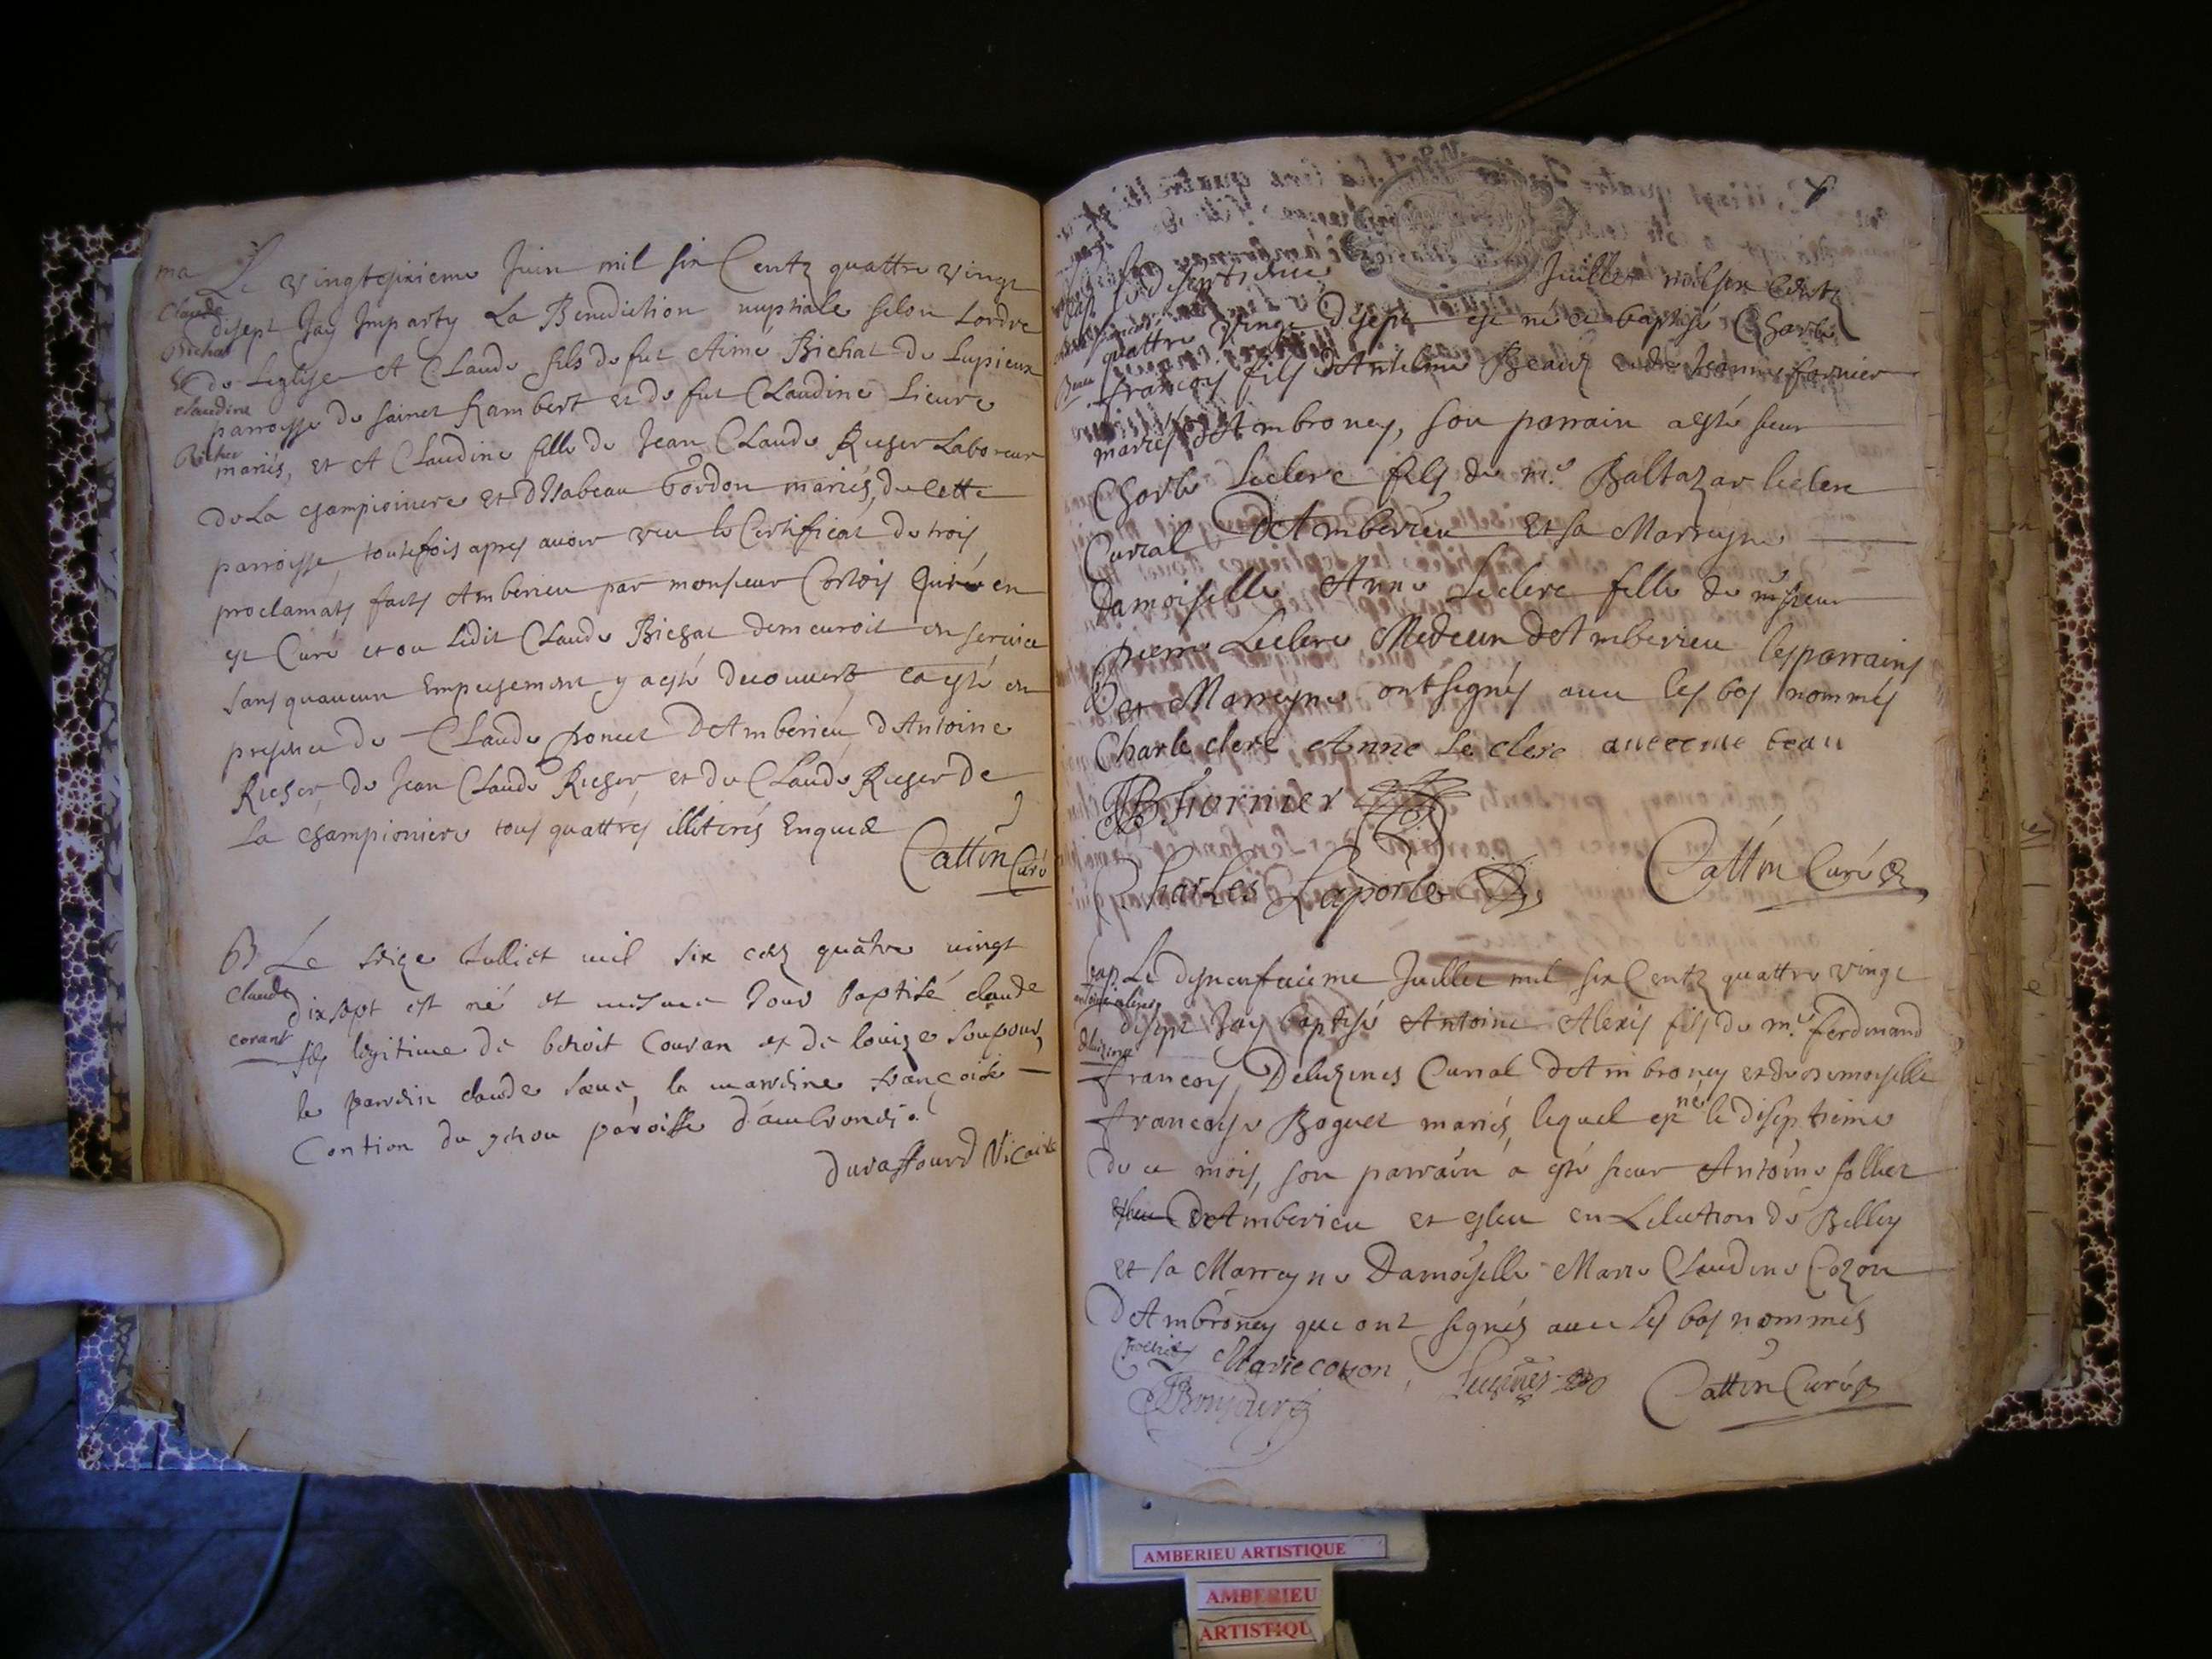 ma Le vingtsixieme Juin mil six Centz quattre vingt
Claude
disept Jay Imparty La Benediction nuptiale selon Lordre
Bichat
et de Leglise A Claude fils de fut Aimé Bichat de Lupieux
claudine
parroisse de sainct Rambert et de fut Claudine Lieure
Richer
mariés, et A Claudine fille de Jean Claude Richer Laboreur
de La championiere et dIsabeau Gordon mariés, de Cette
parroisse, toutefois apres auoir veu le Certificat de trois
proclamats faits Amberieu par monsieur Cortois qui en
est Curé et ou Ledit Claude Bichat demeuroit en seruice
sans quaucun Empechement y a esté decouuert ca esté en
presence de Claude poncet dAmberieu, dAntoine
Richer, de Jean Claude Richer, et de Claude Richer de
La championiere tous quattres illiterés Enquis
Cattin Curé
B Le seize Julliet mil six cens quatre vingt
claude
dixsept est né et mesme Jour baptisé claude
corant
fils legitime de benoit Couran et de louize
le pardin claude la mardine francoise
Contion du paroisse dambronai.
Durassourd Vicaire
Le diseptieme Juillet mil six Centz
bap
quattre vingt disept est né et baptisé Charle
francois fils dAntelme Beaud et de Jeanne fornier
mariés dAmbroney, son parrain a esté sieur
Charle Leclerc fils de me. Baltazar leclerc
Curial dAmberieu Et sa Marreyne
Damoiselle Anne Leclerc fille de monsieur
pierre Leclerc Medecin dAmberieu les parrains
et Marreyne ont signés auec les bas nommés
Charle clerc Anne Le clerc beau
Fhornier
Charles Laporte Cattin Curé
bap. Le disneufuieme Juillet mil six Centz quattre vingt
antoine alexis
disept Jay baptisé Antoine Alexis fils de me. ferdinand
francois Deluzines Curial dAmbroney et de demoiselle
francoise Boguet mariés, lequel est né le diseptieme
de ce mois, son parrain a esté sieur Antoine follier
dAmberieu et esleu en Lelection de Belley
et sa Marreyne Damoiselle Marie Claudine Cozon
dAmbroney qui ont signés auec Les bas nommés
Marie cozon
Cattin Curé
AMBERIEU ARTISTIQUE
AMBERIEU
ARTISTIQU